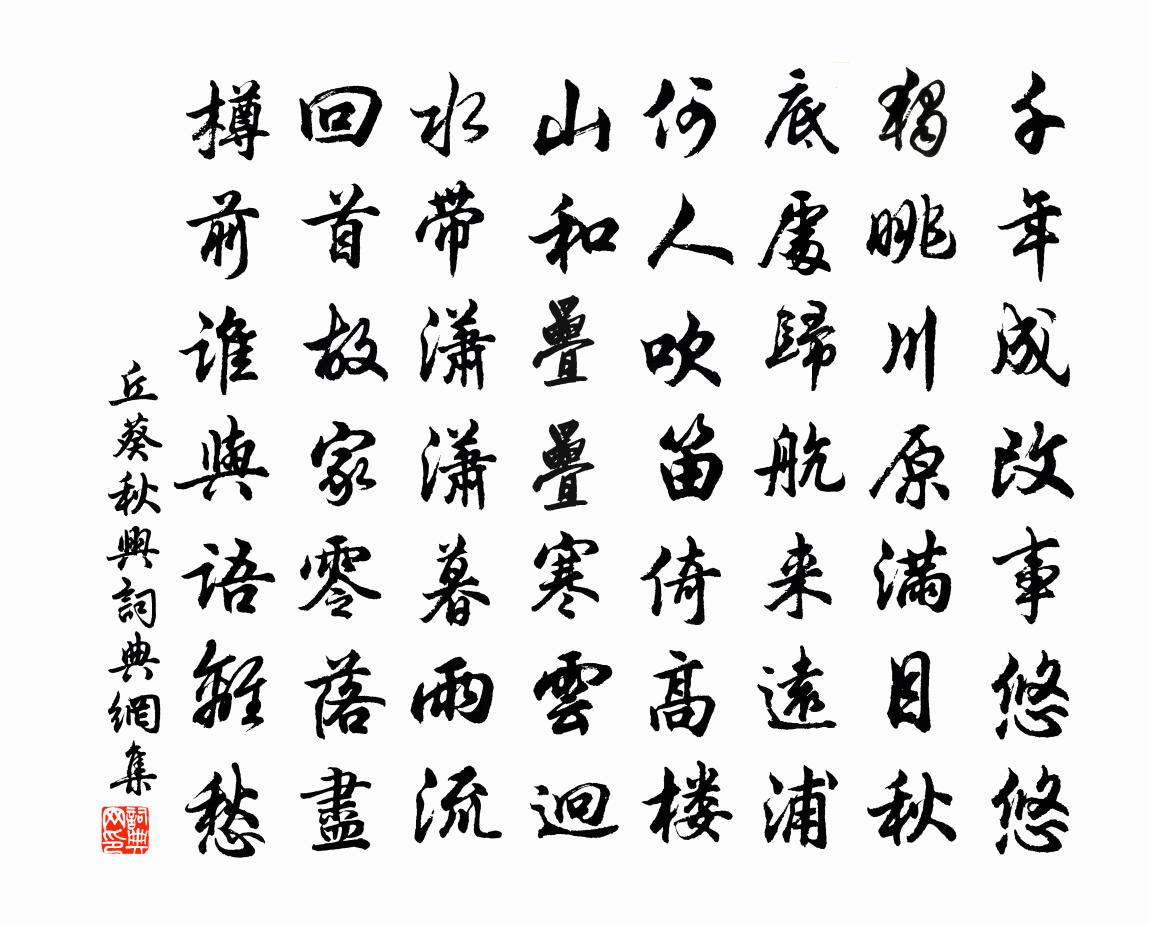 千年成改事悠悠
獨眺川原滿目秋
底處歸航来遠浦
何人吹笛倚高楼
山和疊疊寒雲迥
水带瀟瀟暮雨流
回首故家零落盡
樽前誰與語離愁
丘葵秋興詞典網集
詞典网印